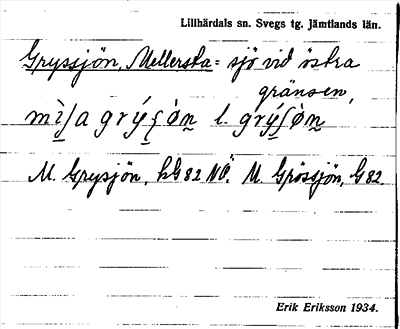 Lillhärdals sn. Svegs tg. Jämtlands län.
Gryssjön, Mellersta = sjö vid östra
gränsen,
l.
M. Grysjön, kG82 NÖ. M. Grössjön, G82.
Erik Eriksson 1934.